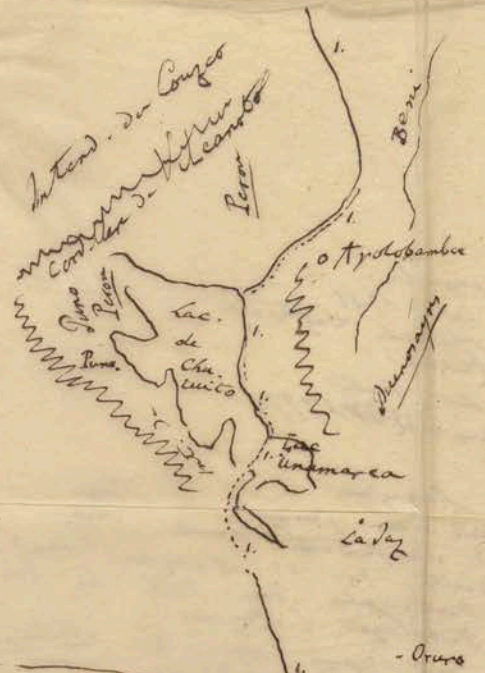 1.
Intend. du Couzco
Cordillera de Vilcanota
Perou
Beni
1.
Apolobamba
Puno
Perou
Puno.
Lac.
de
Chu
cuito
1.
Buenosayres
1.
Lac
Unamarca
La Paz
1.
- Oruro